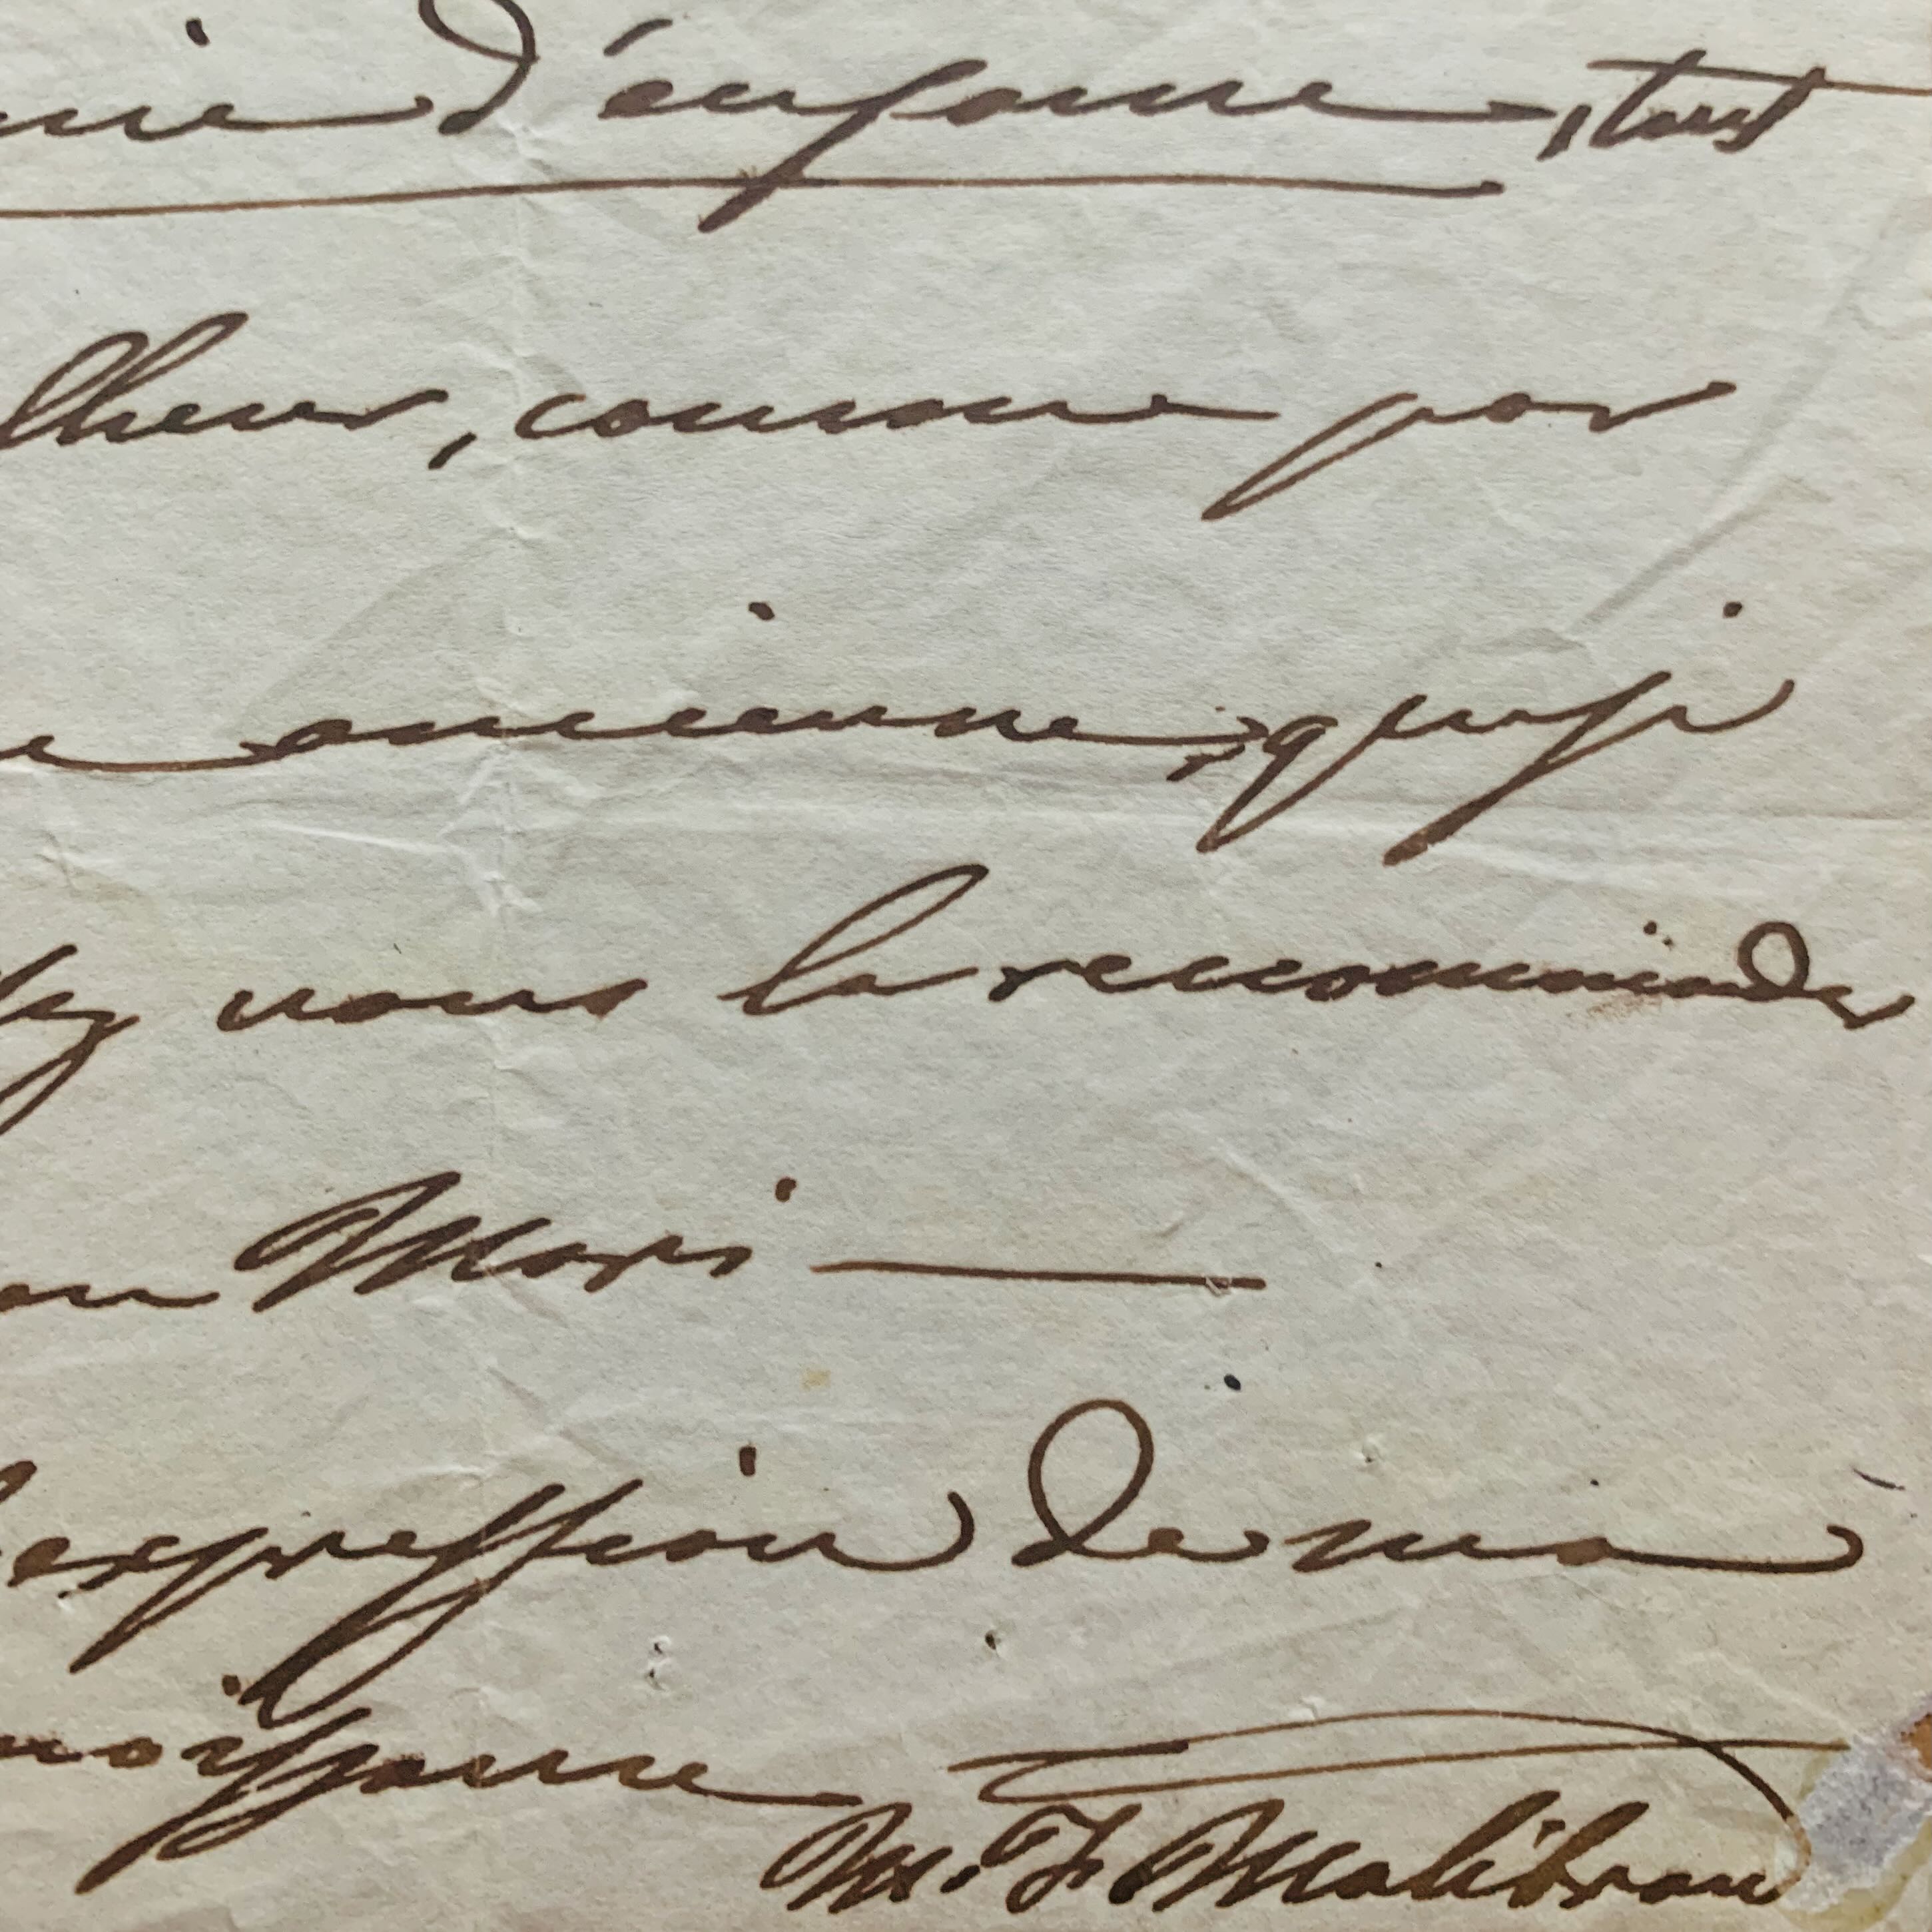 mie d'enfance, tant
lheur, comme par
e ancienne, quasi
ez vous la recommander
on Mari —
l'expression de ma
noissance
M. F. Malibran